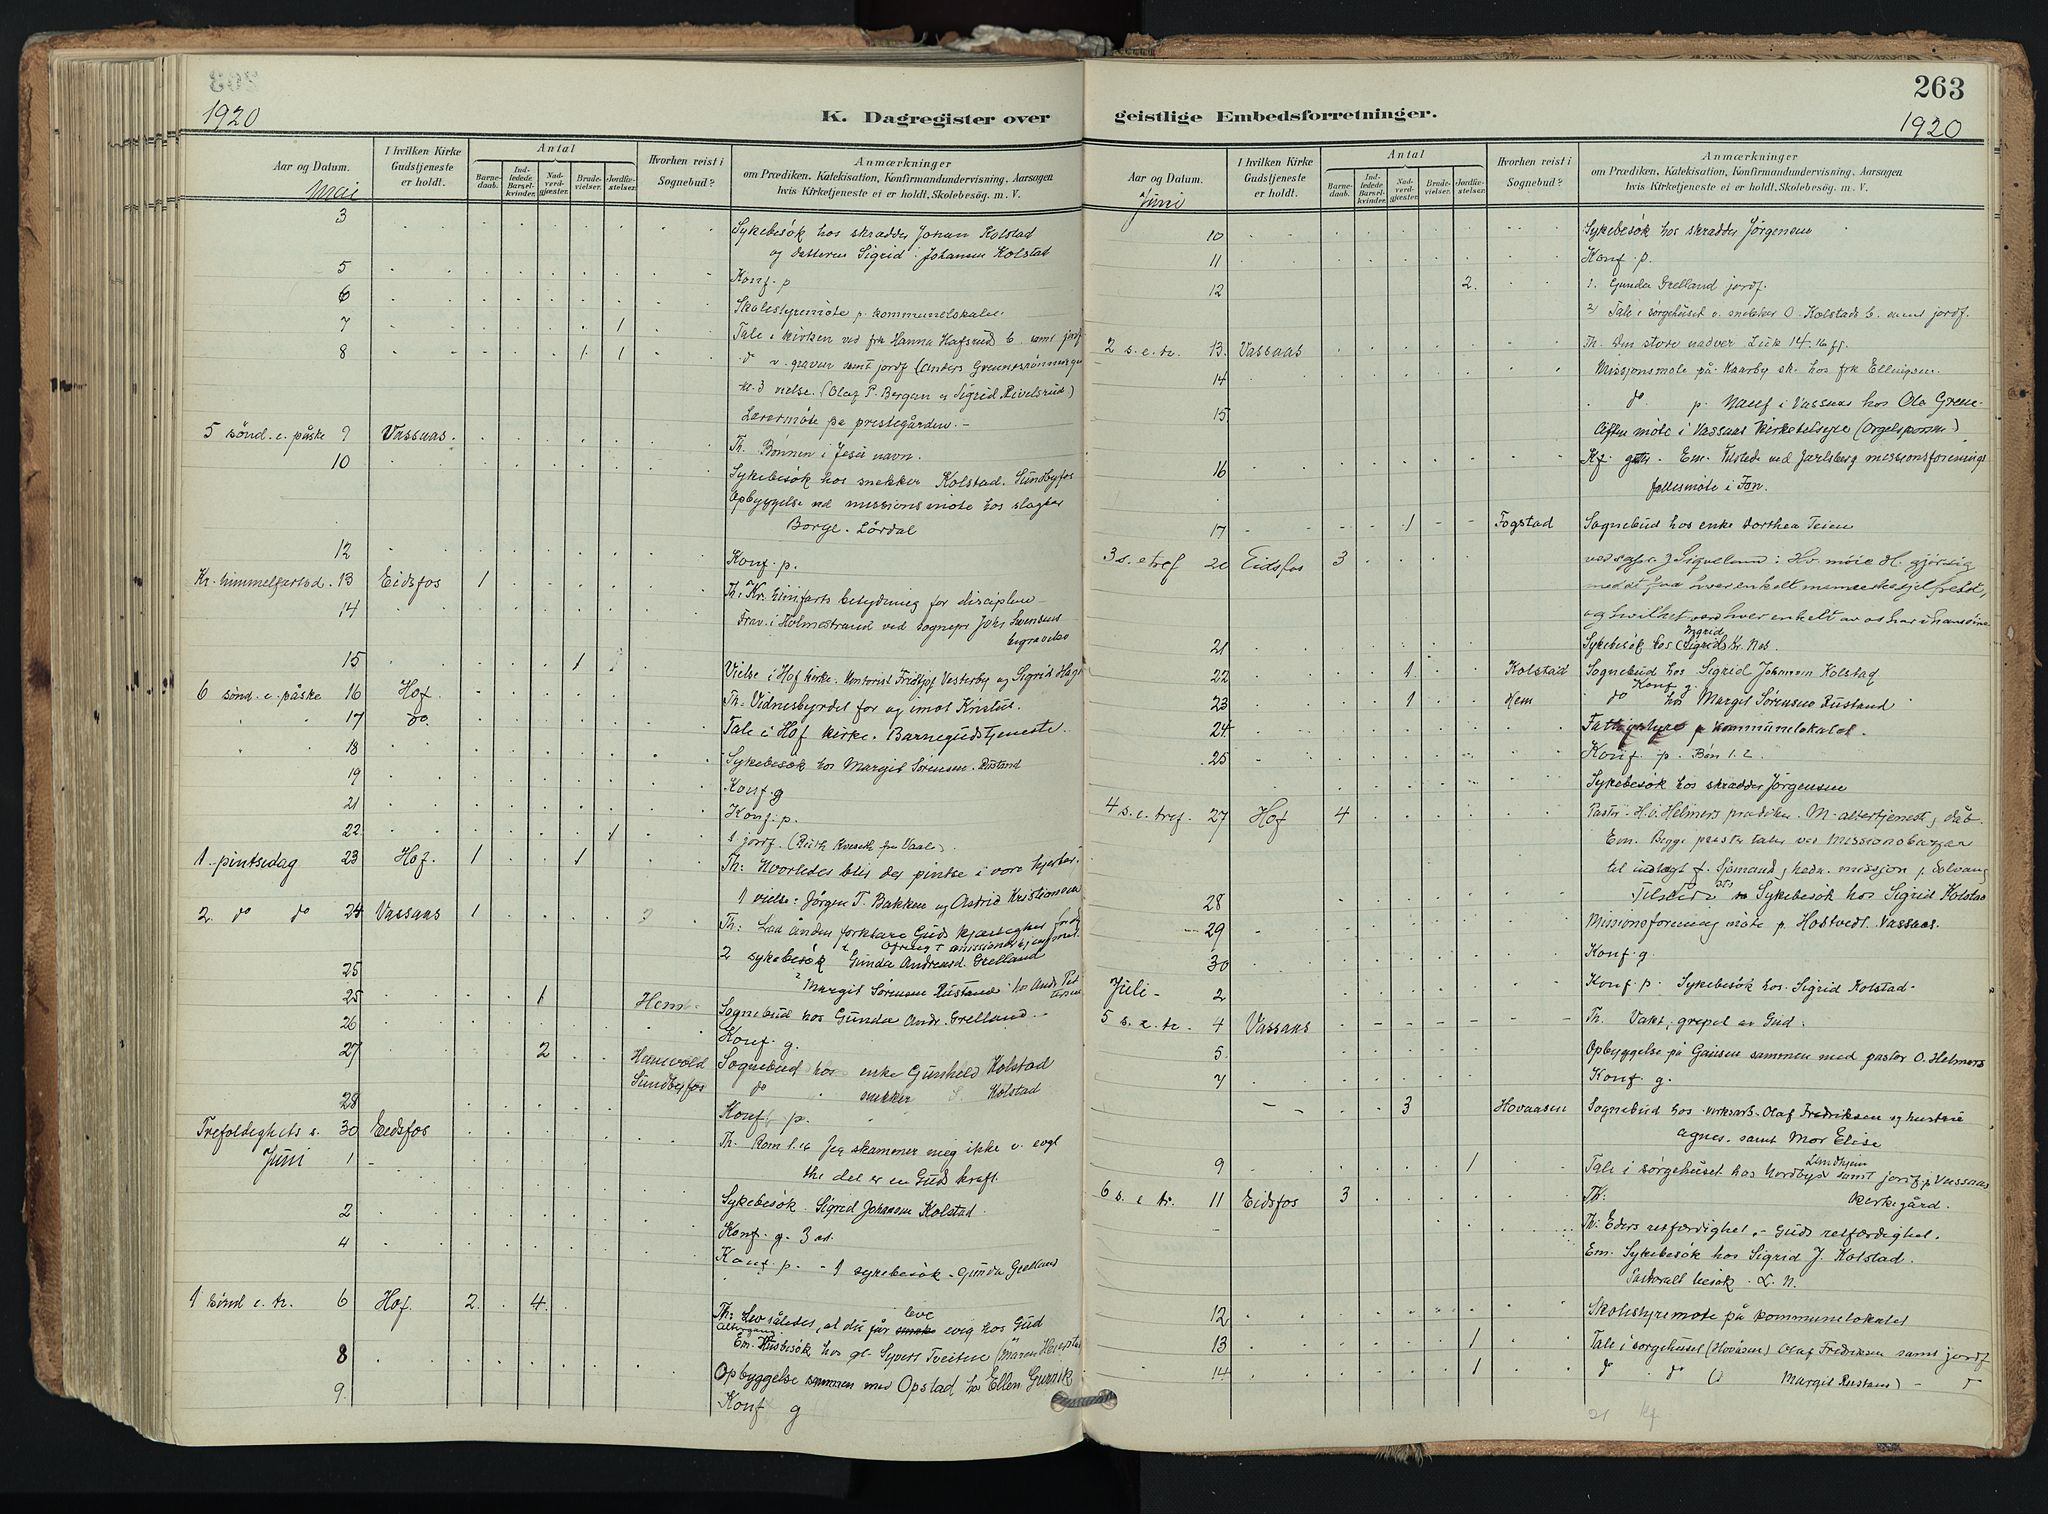 1920
K. Dagregister over
Aar og Datum.
I hvilken Kirke Gudstjeneste er holdt.
Antal
Barnedaab.
Indledede Barselkvinder.
Nadverdgjæster.
Brudevielser.
Jordfæstelser.
Hvorhen reist i Sognebud?
Anmærkninger
om Prædiken, Katekisation, Konfirmandundervisning, Aarsagen
hvis Kirketjeneste ei er holdt, Skolebesøg, m. V.
Mai
3 Sykebesök hos skrædder Johan Kolstad
og datteren Sigrid Johansen Kolstad
5 Konf. p
6 Skolestyremöte p. kommunelokalet
7 1 Tale i kirken ved frk Hanna Hafsrud b. samt jordf
8 1 1 do v. graven samt jordf (Anders
kl. 3 vielse. (Olaf P. Bergan o Sigrid Rivelsrud)
Lærermöte på prestegården.
5 sönd. e. påske 9 Vassaas. Th. Bönnen i Jesu navn.
10 Sykebesök hos snekker Kolstad. Sundbyfos
Opbyggelse ved missionsmöte hos slagter
Borge. Lördal
12 Konf. p.
Kr. himmelfartsd. 13 Eidsfos 1 Th. Kr. himfarts betydning for disciplene
14 Frav. i Holmestrand ved sognepr Johs Svensens
begravelse
15 1 Vielse i Hof kirke. Kontorist Fridtjof Vesterby og Sigrid
6 sönd. e. påske 16 Hof. Th. Vidnesbyrdet for og imot Kristus.
17 do. Tale i Hof kirke. Barnegudstjeneste.
18 Sykebesök hos Margit Sörensen. Rustand
19 Konf. g
21 Konf. p.
22 1 1 jordf. (Ruth fra Vaale)
1 pintsedag 23 Hof. 1 1 Th: Hvorledes blir der pintse i vore hjerter.
1 vielse: Jörgen T. Bakken og Astrid Kristiansen
2. do do 24 Vassaas 1 Th: Lad ånden forklare Guds kjærlighet for dig
25 2 sykebesök 1 Gunda Andreasd. Grelland
2 Margit Sörensen Rustand
25 1 Hem Sognebud hos Gunda Andr. Grelland.
26 Konf. g.
27 2 Haugvold Sognebud hos enke Gunhild Kolstad
Sundbyfos do " snekker Kolstad
28 Konf. p.
Trefoldighets s. 30 Eidsfos Th. Rom 1.16 Jeg skammer meg ikke v. evgl
Juni 1 thi det er en Guds kraft.
2 Sykebesök. Sigrid Johansen Kolstad.
4 Konf. g. 3
Konf. p. - 1 sykebesök - Gunda Grelland
1 sönd e. tr. 6 Hof. 2. 4. Th: Lev således, at du får leve evig hos Gud
Altergang
Em. Husbesök hos gl. Syvert Tveiten
8 Opbyggelse sammen med Opstad, hos Ellen
9. Konf g
263
geistlige Embedsforretninger.
1920
Aar og Datum.
I hvilken Kirke Gudstjeneste er holdt.
Antal
Barnedaab.
Indledede Barselkvinder.
Nadverdgjæster.
Brudevielser.
Jordfæstelser.
Hvorhen reist i Sognebud?
Anmærkninger
om Prædiken, Katekisation, Konfirmandundervisning, Aarsagen
hvis Kirketjeneste ei er holdt, Skolebesøg, m. V.
Juni
10 Sykebesök hos skrædder Jörgensen
11 Konf. p.
12 2. 1. Gunda Grelland jordf.
2) Tale i sörgehuset v. snekker O. Kolstads b. samt jordf.
2 s. e. tr. 13. Vassaas Th. Den store nadver Luk 14. 16 ff.
14 Missjonsmöte på Haarby sk. hos frk Ellingsen
15 do p. i Vassaas hos Ola Grene
Aften möte i Vassaas kirkebelyse (Orgelspørsm)
16 Kf. gutter. Em. tilstede ved Jarlsberg missionsforenings
fellesmöte i Fon.
17 1 Fogstad Sognebud hos enke Dorthea Teien
3 s. e tref 20 Eidsfos 3 ved sgpr. J Sigveland i Hv. möie H. gjörsig
med at faa hver enkelt menneskesjel frelst,
og hvilket værd hver enkelt av os har i hans öine
21 Sykebesök hos (Sigrid) Ingrid Kr. Nes.
22 1 Kolstad Sognebud hos Sigrid Johansen Kolstad
23 1 Hem do hos Margit Sörensen Rustand
Konf g.
24 Fattigstyre p kommunelokalet.
25 Konf. p. Bön 1. 2
Sykebesök hos skrædder Jörgensen
4 s. e. tref. 27 Hof 4 Pastor H. O. Helmers prædiken. M. altertjeneste, dåb.
Em. Begge prester taler ved Missionsbazar
til indtægt f. Sjömand, hedn. misjon p. Solvang
28 Tilsted Sykebesök hos Sigrid Kolstad
29 Missionsforening möte p. Hostvedt. Vassaas.
30 Konf. g.
Juli - 2 Konf. p. Sykebesök hos. Sigrid Kolstad.
5 s. e. tr. 4 Vassaas Th. Vakt, grepet av Gud.
5 Opbyggelse på Gausen sammen med pastor O. Helmers
7 Konf. g.
3 Hovaasen Sognebud hos verksarb. Olaf Fredriksen og hustru
Agnes. samt Mor Elise
9 1 Tale i sörgehuset hos Nordbye Lundhjem samt jordf. p Vassaas
6 s. e tr. 11 Eidsfos 3 Th: kirkegård.
Th: Eders retfærdighet - Guds retfærdighet.
Em. Sykebesök hos Sigrid J. Kolstad.
Pastoralt besök. L. N.
12 Skolestyremöte på kommunelokalet
13 1 Tale i sörgehuset (Hovåsen) Olaf Fredriksen samt jordf
14 1 do do () Margit Rustand)
21 kf.